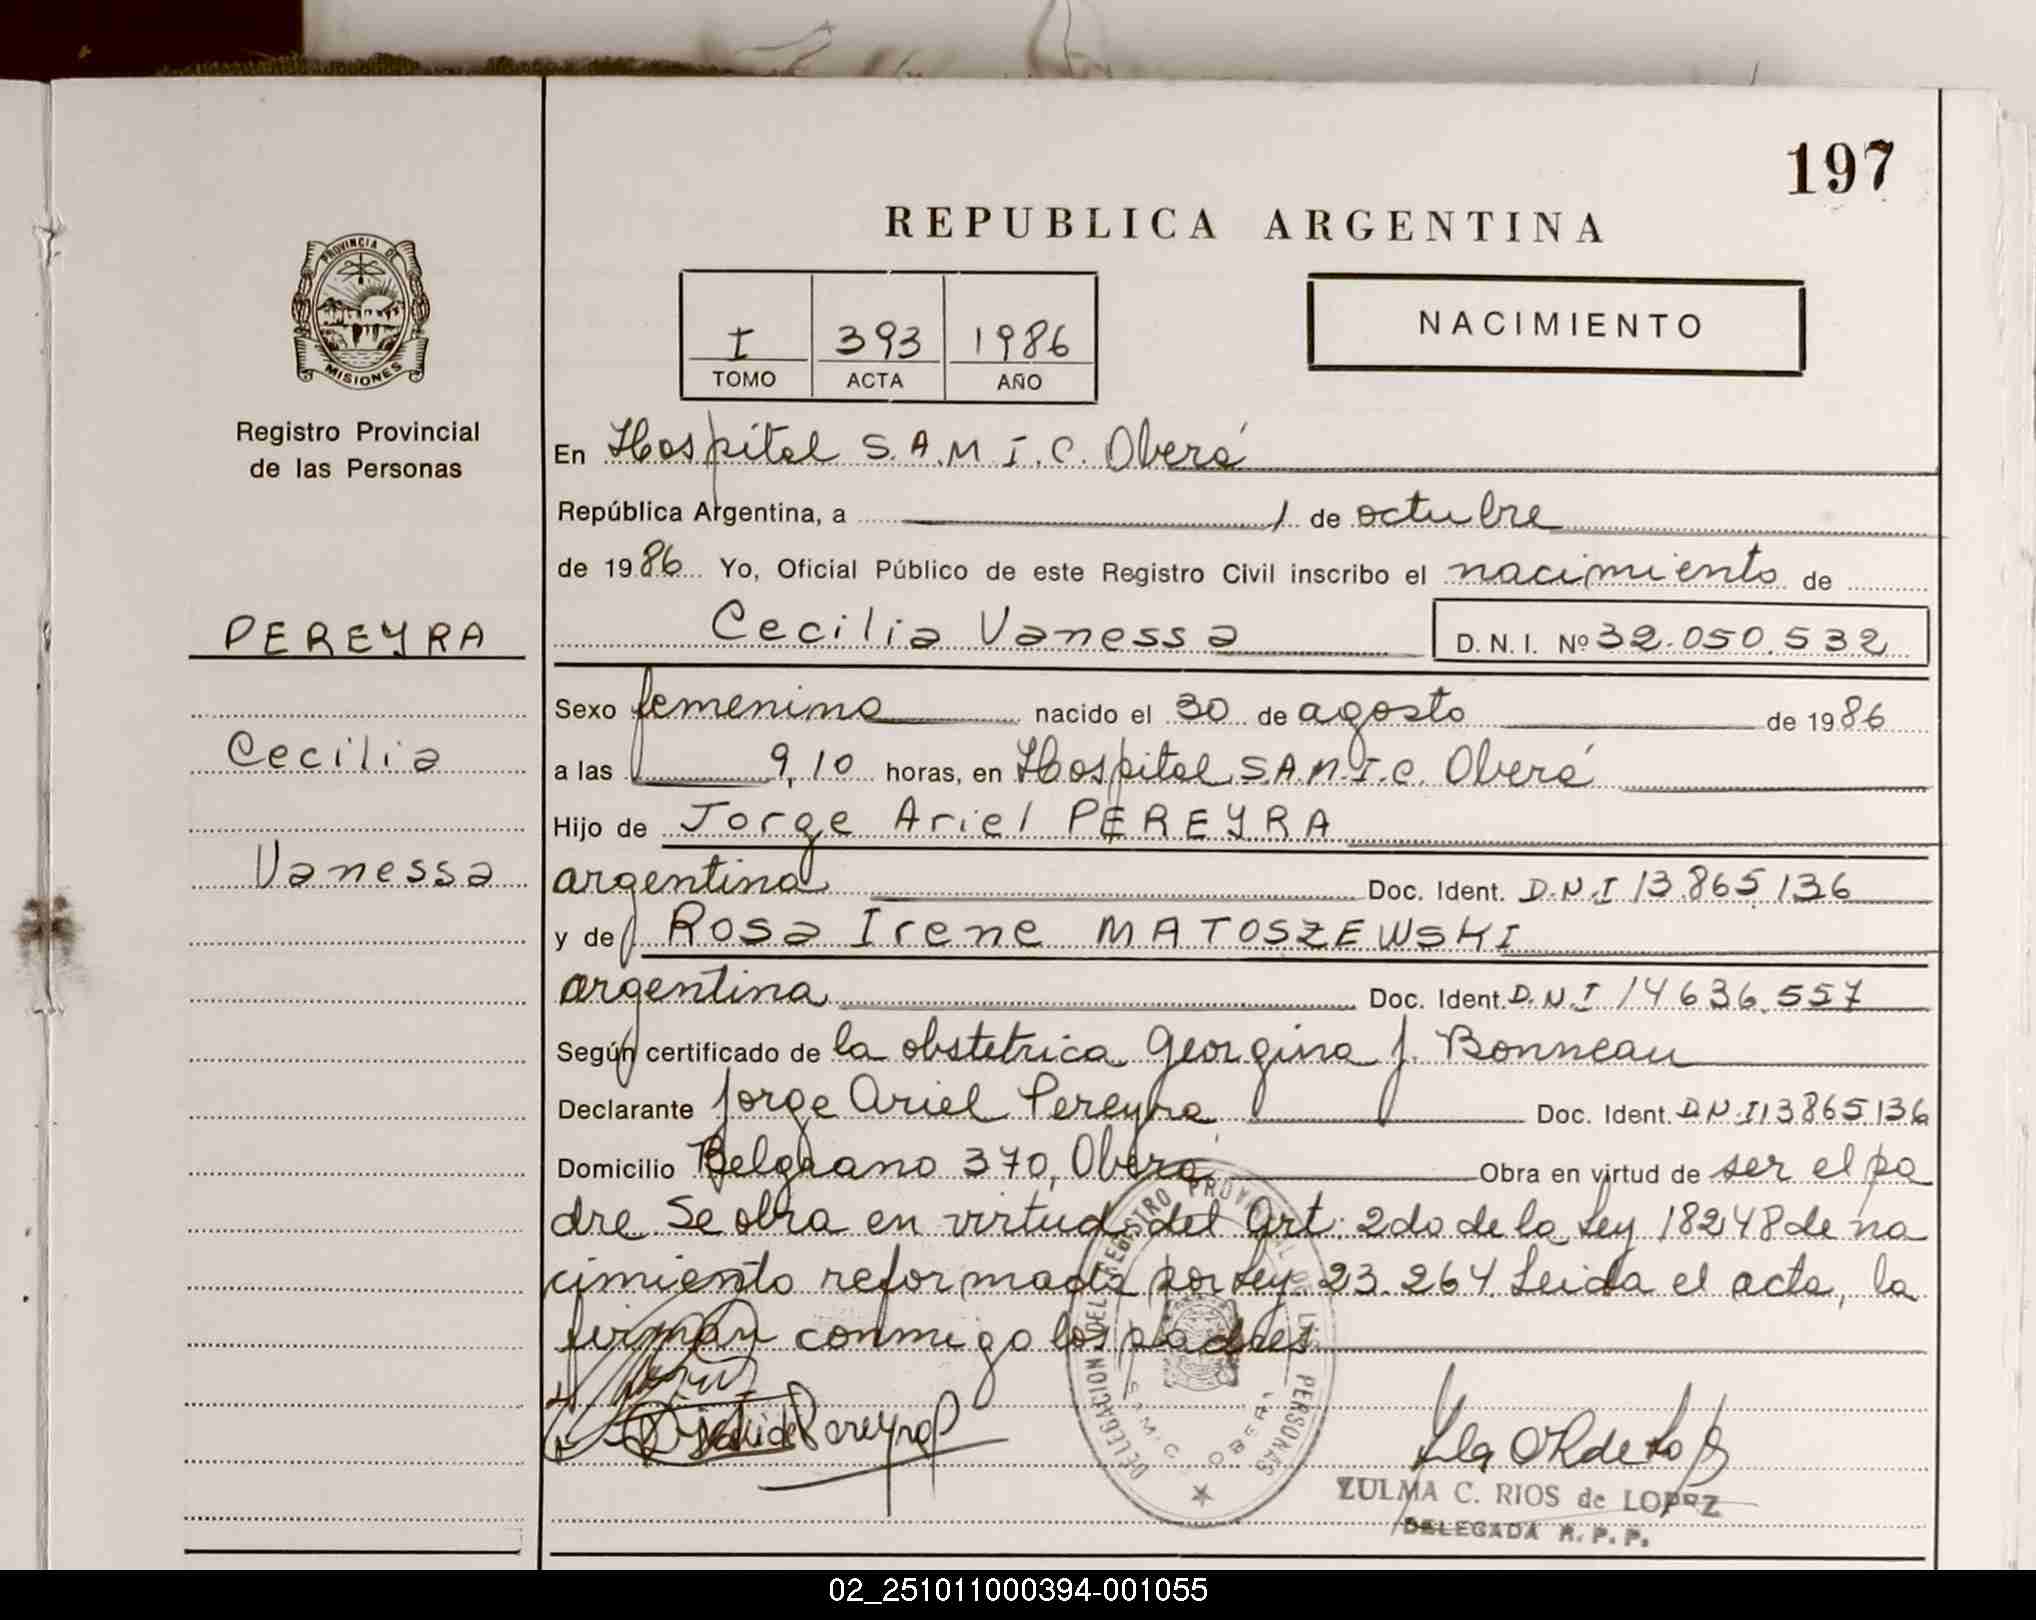 197
REPUBLICA ARGENTINA
PROVINCIA DE
MISIONES
Registro Provincial
de las Personas
I 393 1986
TOMO ACTA AÑO
NACIMIENTO
En Hospital S.A.M.I.C. Oberá
República Argentina, a 1 de octubre
de 1986 Yo, Oficial Público de este Registro Civil inscribo el nacimiento de
Cecilia Vanessa D. N. I. Nº 32.050.532
PEREYRA
Cecilia
Vanessa
Sexo femenino nacido el 30 de agosto de 1986
a las 9,10 horas, en Hospital S.A.M.I.C. Oberá
Hijo de Jorge Ariel PEREYRA
argentino Doc. Ident. D.N.I 13.865.136
y de Rosa Irene MATOSZEWSKI
argentina Doc. Ident. D.N.I 14.636.557
Según certificado de la obstetrica Georgina J. Bonneau
Declarante Jorge Ariel Pereyra Doc. Ident. D.N.I 13865.136
Domicilio Belgrano 370, Oberá Obra en virtud de ser el pa
dre. Se obra en virtud del Art: 2do de la Ley 18248 de na
cimiento reformada por Ley 23.264. Leida el acta, la
firman conmigo los padres
DELEGACION DEL REGISTRO PROVINCIAL DE LAS PERSONAS
S.A.M.I.C. OBERA
Pereyra
ZULMA C. RIOS de LOPEZ
DELEGADA R. P. P.
02_251011000394-001055